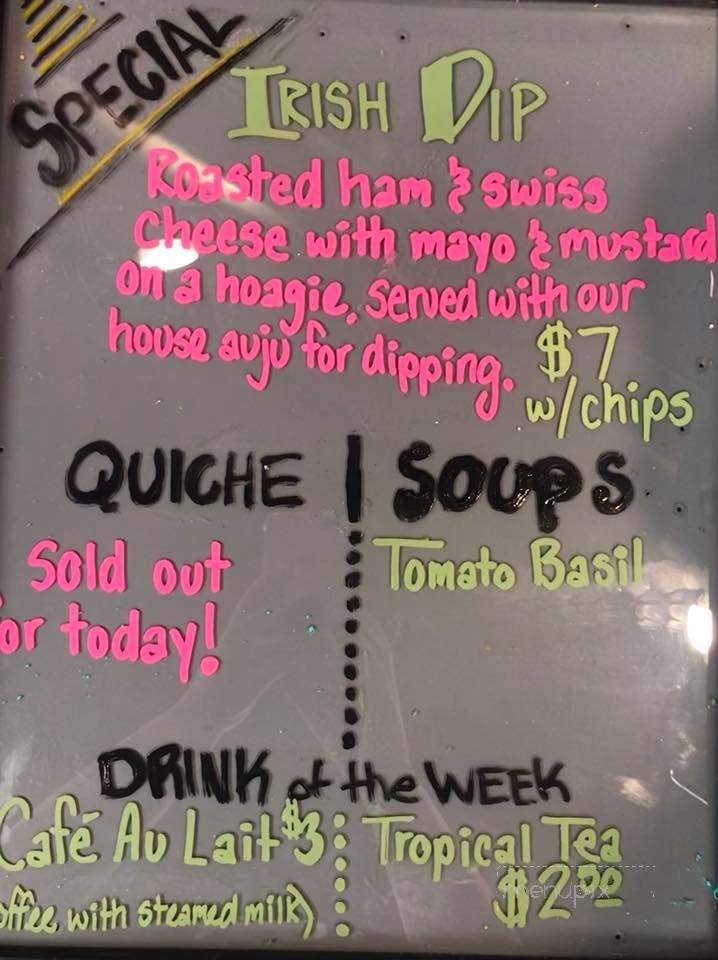 SPECIAL
IRISH DIP
Roasted ham & swiss
cheese with mayo & mustard
on a hoagie, served with our
house auju for dipping. $7
w/chips
QUICHE | SOUPS
Sold out
or today!
Tomato Basil
DRINK of the WEEK
Café Au Lait $3
offee with steamed milk)
Tropical Tea
menupix